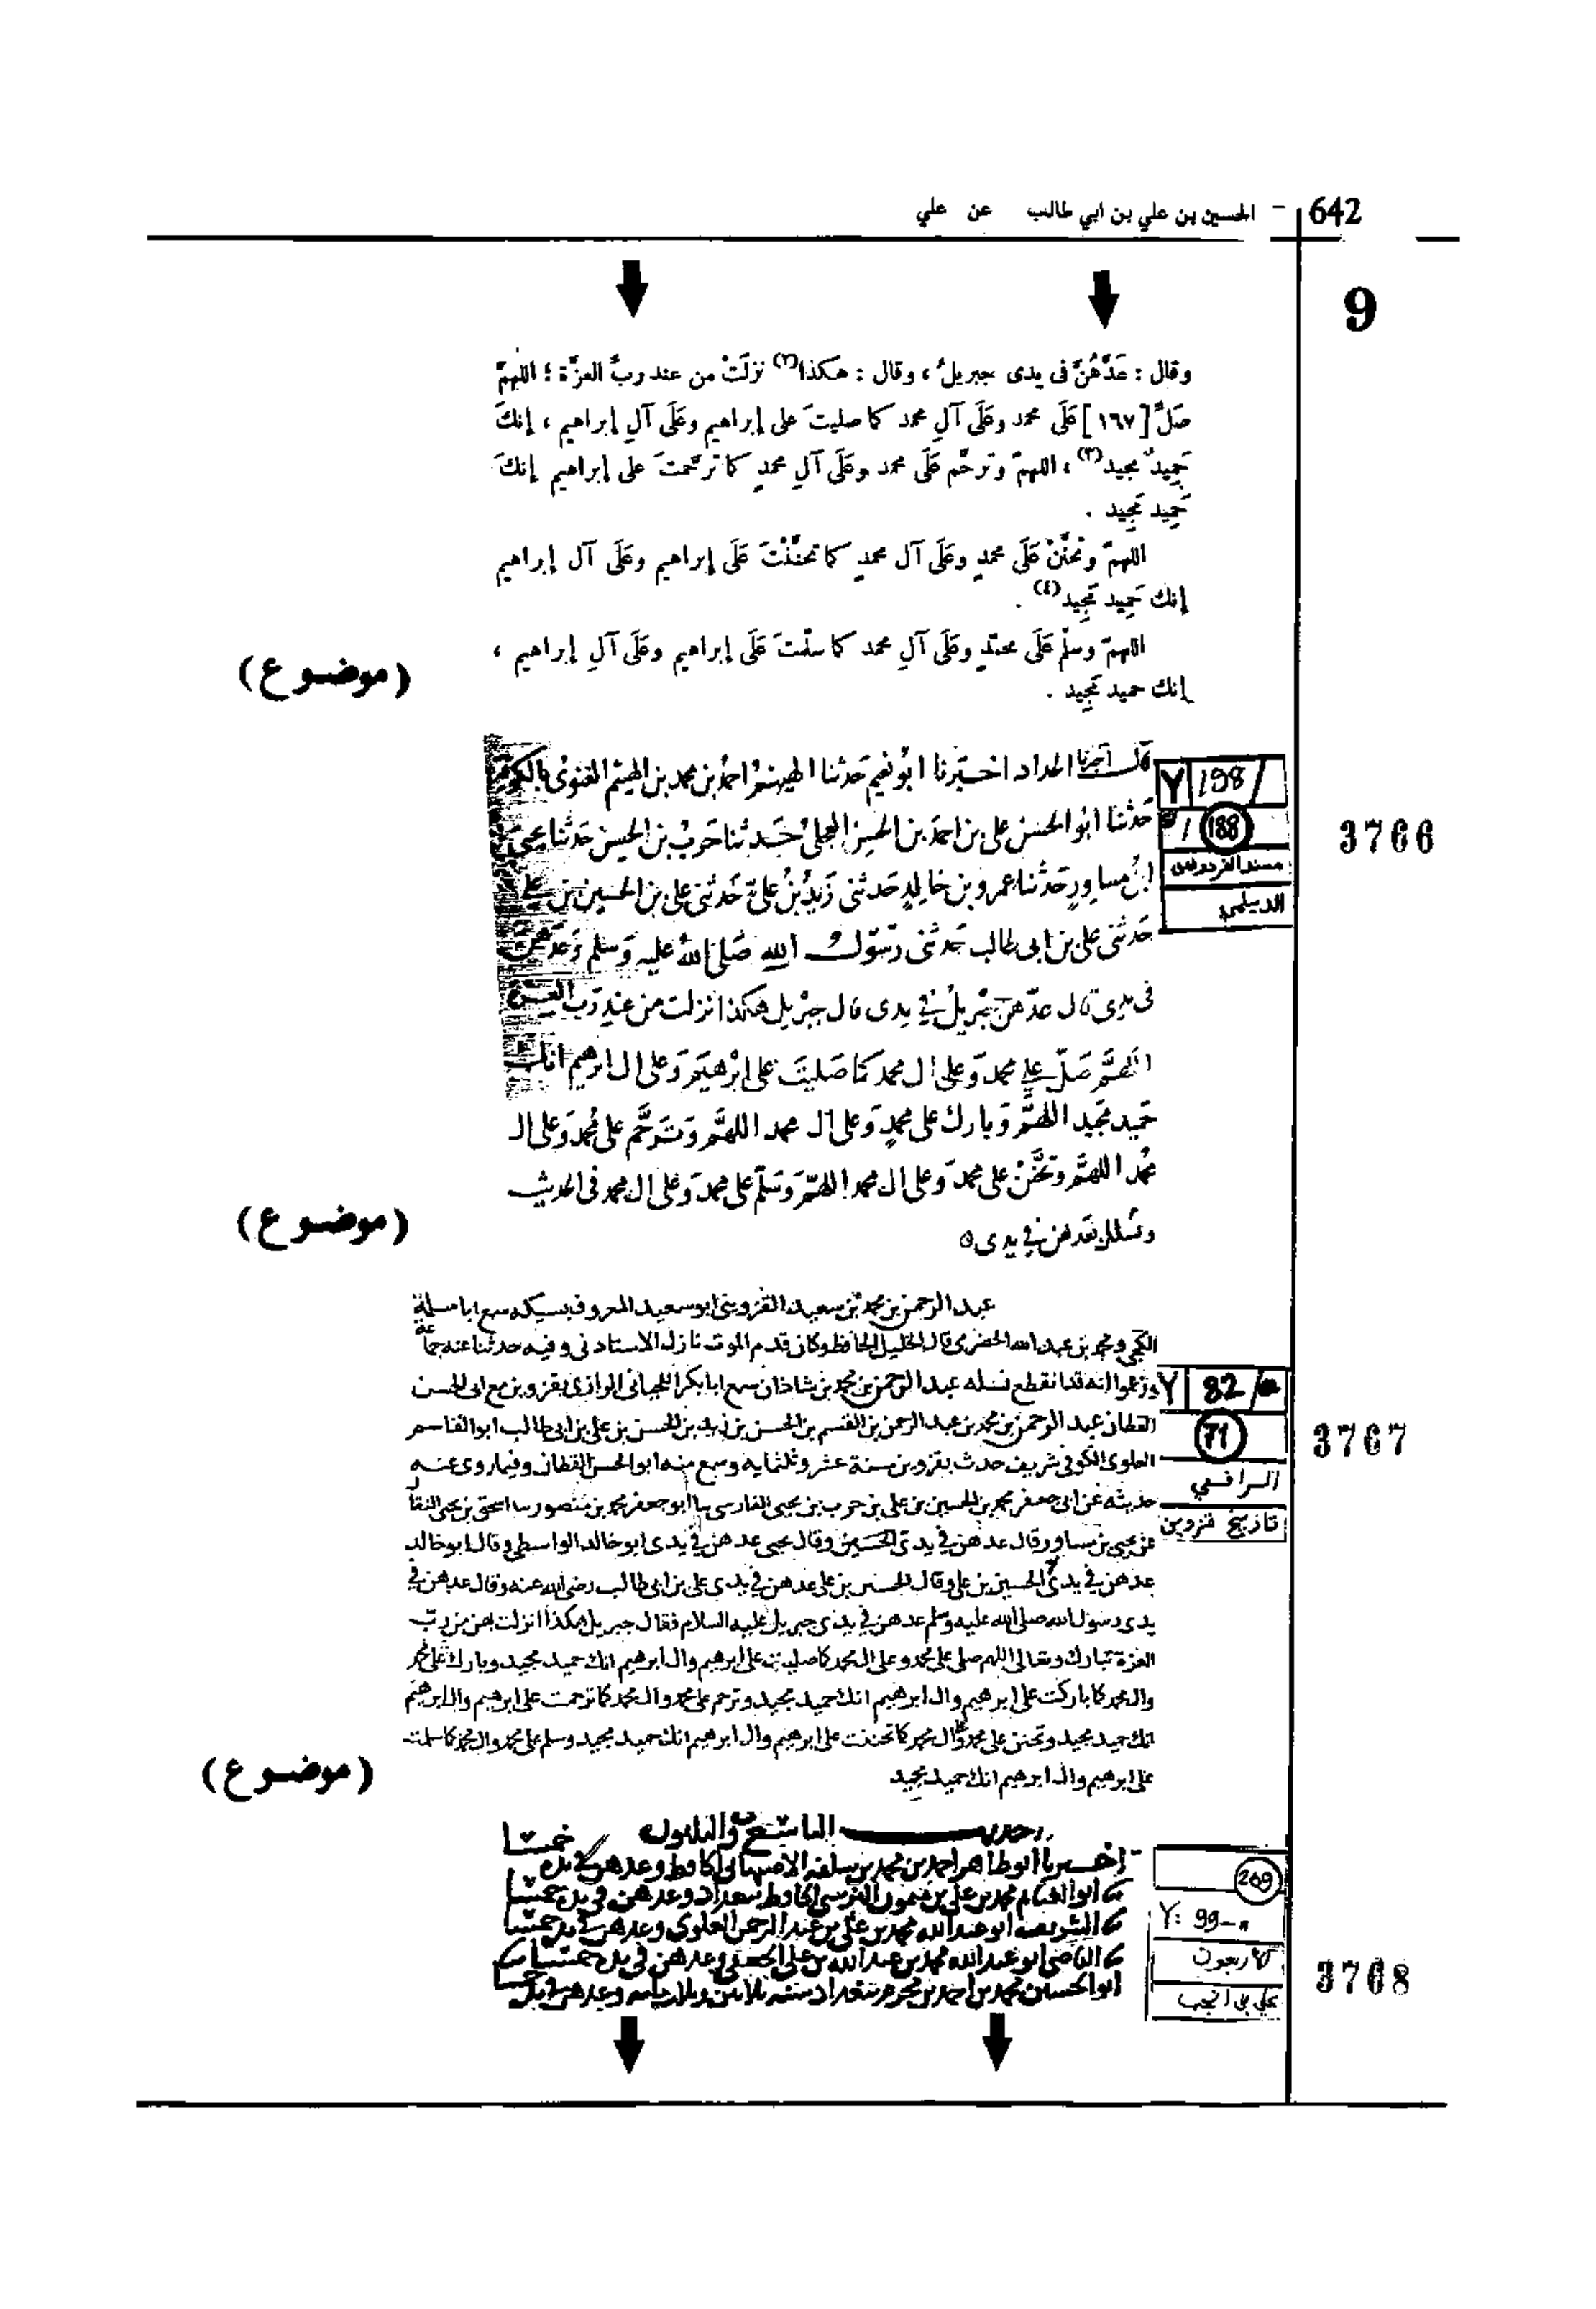 642 - الحسين بن علي بن ابي طالب عن علي
9
وقال : عَدَّهُنَّ فى يدى جبريلُ ، وقال : هكذا(٢) نزلَتْ من عند ربِّ العزّة : اللهمّ
صَلِّ [١٦٧] عَلَى محمد وعَلَى آلِ محمد كما صليتَ على إبراهيم وعَلَى آلِ إبراهيم ، إنكَ
حَمِيدٌ مجيد(٣) ، اللهمّ وترحَّم عَلَى محمد وعَلَى آلِ محمدٍ كما ترحَّمتَ على إبراهيم إنكَ
حَمِيد مَجِيد .
اللهمّ وتحنَّنْ عَلَى محمدٍ وعَلَى آل محمدٍ كما تحنَّنْتَ عَلَى إبراهيم وعَلَى آل إبراهيم
إنك حَمِيد مَجِيد(٤) .
اللهمّ وسلِّم عَلَى محمّدٍ وعَلَى آلِ محمد كما سلّمتَ عَلَى إبراهيم وعَلَى آلِ إبراهيم ،
إنك حميد مَجِيد .
(موضوع)
3766
Y 198/
188
مسند الفردوس
الديلمي
قال اخبرنا الحداد اخبرنا ابو نعيم حدثنا الهيثم احمد بن محمد بن الهيثم الغنوى بالكوفة
حدثنا ابو الحسن على بن احمد بن الحسين العجلى حدثنا حرب بن الحسين حدثنا يحيى
ابن مساور حدثنا عمرو بن خالد حدثنى زيد بن على حدثنى على بن الحسين بن على
حدثنى على بن ابى طالب حدثنى رسول الله صلى الله عليه وسلم وعدهن
فى يدى قال عدهن جبريل فى يدى قال جبريل هكذا نزلت من عند رب العزة
اللهم صل على محمد وعلى ال محمد كما صليت على ابرهيم وعلى ال ابرهيم انك
حميد مجيد اللهم وبارك على محمد وعلى ال محمد اللهم وترحم على محمد وعلى ال
محمد اللهم وتحنن على محمد وعلى ال محمد اللهم وسلم على محمد وعلى ال محمد فى الحديث
فى يدى
(موضوع)
3767
Y 82/a
71
الرافعي
تاريخ قزوين
عبد الرحمن بن محمد بن سعيد القزوينى ابو سعيد المعروف سمع ابا مسلم
الكجى ومحمد بن عبد الله الحضرى قال الخليل الحافظ وكان قديم الموت نازل الاسناد وفيه حدثنا عنه جماعة
وزعموا انه قد انقطع نسله عبد الرحمن بن محمد بن شاذان سمع ابا بكر الرازى بقزوين مع ابى الحسن
القطان عبد الرحمن بن محمد بن عبد الرحمن بن القسم بن الحسن بن زيد بن الحسن بن على بن ابى طالب ابو القاسم
العلوى الكوفى شريف حدث بقزوين سنة عشر وثلثمايه وسمع منه ابو الحسن القطان وفيما روى عنه
حديثه عن ابى جعفر محمد بن الحسين بن على بن حرب بن يحيى الفارسى ابو جعفر محمد بن منصور اسحق بن يحيى
عن يحيى بن مساور قال عدهن فى يدى الحسين وقال يحيى عدهن فى يدى ابو خالد الواسطى وقال ابو خالد
عدهن فى يدى الحسين بن على وقال الحسين بن على عدهن فى يدى على بن ابى طالب رضى الله عنه وقال عدهن فى
يدى رسول الله صلى الله عليه وسلم عدهن فى يدى جبريل عليه السلام فقال جبريل هكذا انزلت بهن من رب
العزة تبارك وتعالى اللهم صلى على محمد وعلى ال محمد كما صليت على ابرهيم وال ابرهيم انك حميد مجيد وبارك على محمد
وال محمد كما باركت على ابرهيم وال ابرهيم انك حميد مجيد وترحم على محمد وال محمد كما ترحمت على ابرهيم وال ابرهيم
انك حميد مجيد وتحنن على محمد وال محمد كما تحننت على ابرهيم وال ابرهيم انك حميد مجيد وسلم على محمد وال محمد كما سلمت
على ابرهيم وال ابرهيم انك حميد مجيد
(موضوع)
3768
269
Y: 99-a
الأربعون
علي بن
التاسع والثلاثون
اخبرنا ابو طاهر احمد بن محمد بن سلفه الاصبهانى الحافظ وعدهن فى يدى خمسا
محمد بن على بن ميمون النرسى الحافظ ببغداد وعدهن فى يدى خمسا
الشريف ابو عبد الله محمد بن على بن عبد الرحمن العلوى وعدهن فى يدى خمسا
القاضى ابو عبد الله محمد بن عبد الله بن على الجعفى وعدهن فى يدى خمسا
ابو الحسين محمد بن احمد بن مخزوم ببغداد سنه ثلاثين وثلاثمايه وعدهن